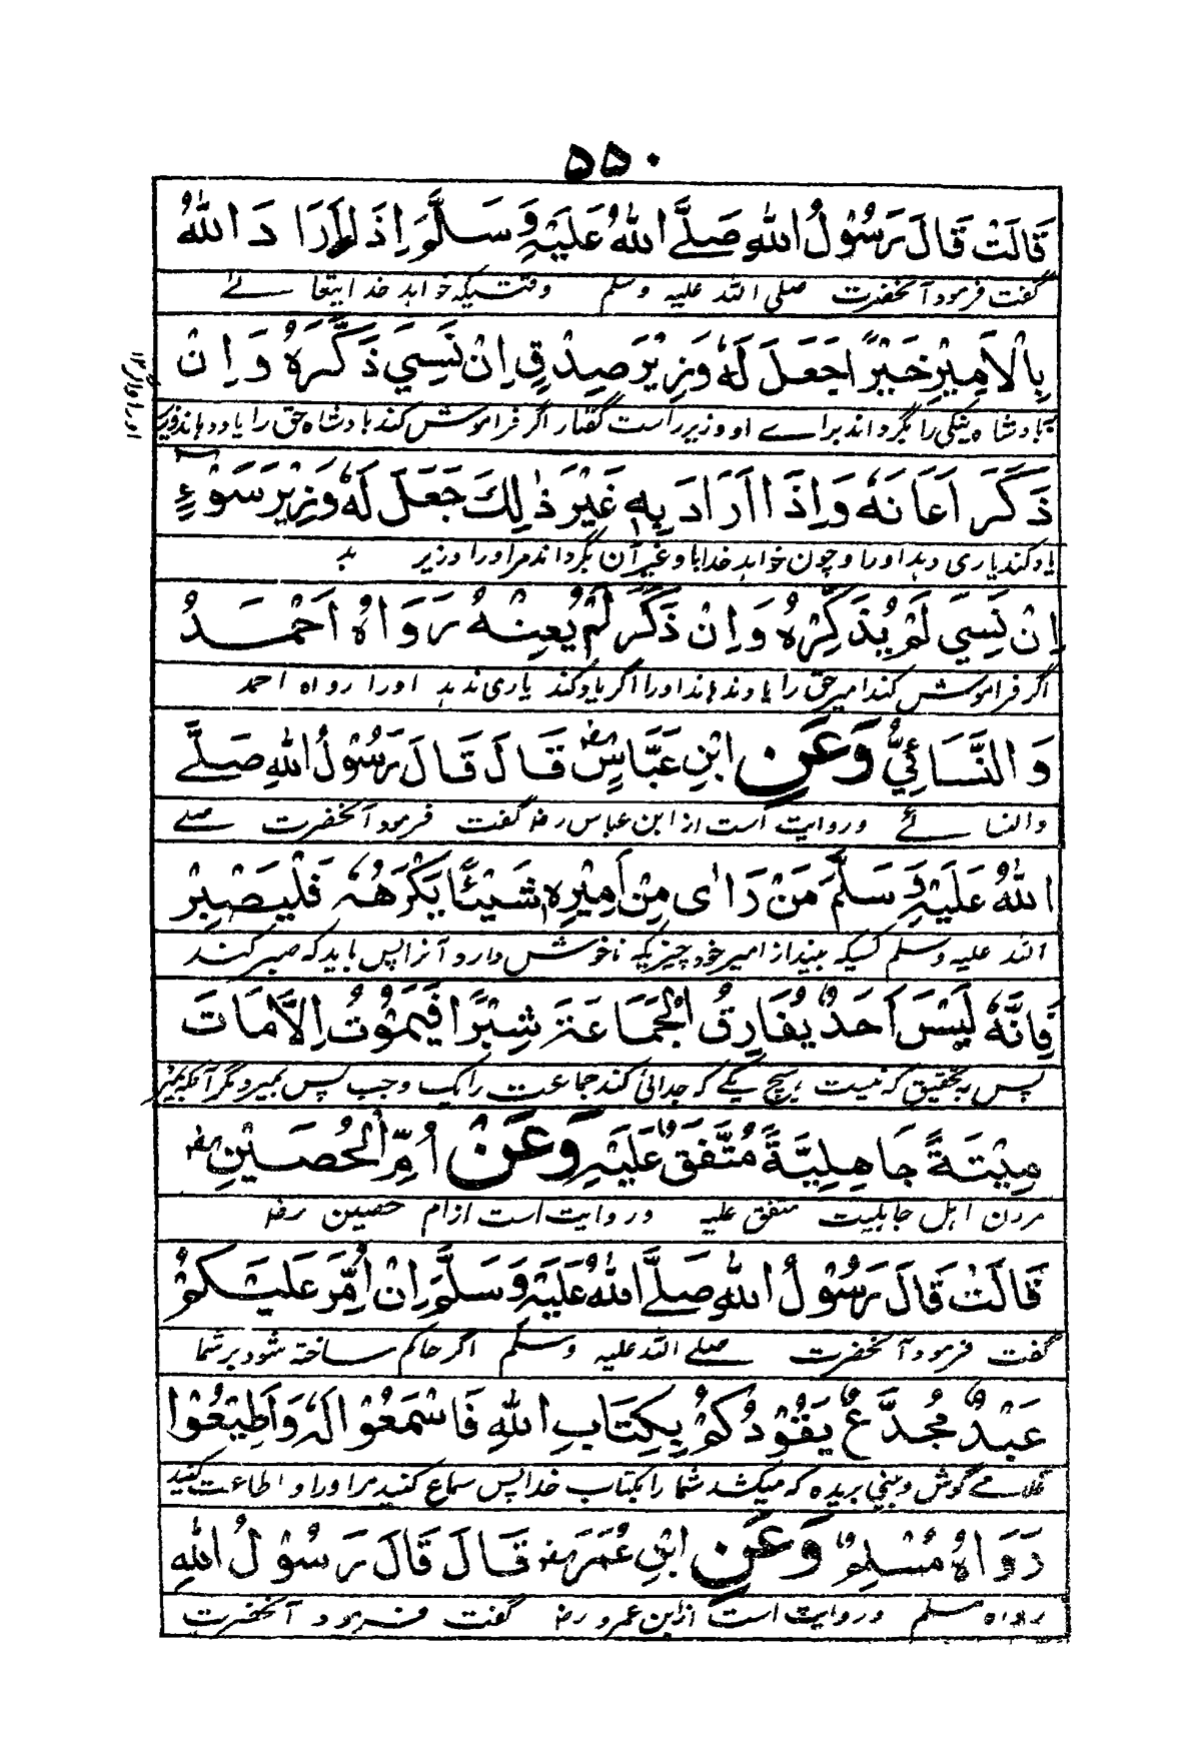 ۵۵۰
قَالَتْ قَالَ رَسُوْلُ اللهِ صَلَّے اللهُ عَلَيْهِ وَسَلَّمَ اِذَا اَرَا دَ اللهُ
گفت فرمود آنحضرت صلی اللہ علیہ وسلم وقتیکہ خواہد خدایتعالے
بِالْاَمِيْرِ خَيْرًا جَعَلَ لَهٗ وَزِيْرَ صِدْقٍ اِنْ نَسِيَ ذَكَّرَهٗ وَ اِنْ
بپادشاہ نیکی را بگرداند براے او وزیر راست گفتار اگر فراموش کند بادشاہ حق را یاد دہاند وزیر
ذَكَرَ اَعَانَهٗ وَاِذَا اَرَادَ بِهٖ غَيْرَ ذٰلِكَ جَعَلَ لَهٗ وَزِيْرَ سَوْءٍ
یاد کند یاری دہد اورا و چون خواہد خدا با و غیر آن بگرداند مر اورا وزیر بد
اِنْ نَسِيَ لَمْ يُذَكِّرْهُ وَاِنْ ذَكَرَ لَمْ يُعِنْهُ رَوَاهُ اَحْمَدُ
اگر فراموش کند امیر حق را یاد ندہاند اورا اگر یاد کند یاری ندہد اورا رواہ احمد
وَ النَّسَائِيُّ وَعَنِ ابْنِ عَبَّاسٍ رض قَالَ قَالَ رَسُوْلُ اللهِ صَلَّے
والنسائے و روایت است از ابن عباس رض گفت فرمود آنحضرت صلے
اللهُ عَلَيْهِ وَسَلَّمَ مَنْ رَاٰى مِنْ اَمِيْرِهٖ شَيْئًا يَكْرَهُهٗ فَلْيَصْبِرْ
اللہ علیہ وسلم کسیکہ ببیند از امیر خود چیزیکہ ناخوش دارد آنرا پس باید کہ صبر کند
فَاِنَّهٗ لَيْسَ اَحَدٌ يُفَارِقُ الْجَمَاعَةَ شِبْرًا فَيَمُوْتُ اِلَّا مَاتَ
پس بہ تحقیق کہ نیست ہیچ یکے کہ جدائی کند جماعت را یک وجب پس بمیرد مگر آنکہ بمیرد
مِيْتَةً جَاهِلِيَّةً مُتَّفَقٌ عَلَيْهِ وَعَنْ اُمِّ الْحُصَيْنِ رض
مردن اہل جاہلیت متفق علیہ و روایت است از ام حصین رض
قَالَتْ قَالَ رَسُوْلُ اللهِ صَلَّے اللهُ عَلَيْهِ وَسَلَّمَ اِنْ اُمِّرَ عَلَيْكُمْ
گفت فرمود آنحضرت صلے اللہ علیہ وسلم اگر حاکم ساختہ شود بر شما
عَبْدٌ مُجَدَّعٌ يَقُوْدُكُمْ بِكِتَابِ اللهِ فَاسْمَعُوْا لَهٗ وَاَطِيْعُوْا
غلامے گوش و بینی بریدہ کہ میکشد شما را بکتاب خدا پس سماع کنید مر اورا و اطاعت کنید
رَوَاهُ مُسْلِمٌ وَعَنِ ابْنِ عُمَرَ رض قَالَ قَالَ رَسُوْلُ اللهِ
رواہ مسلم و روایت است از ابن عمر و رض گفت فرمود آنحضرت